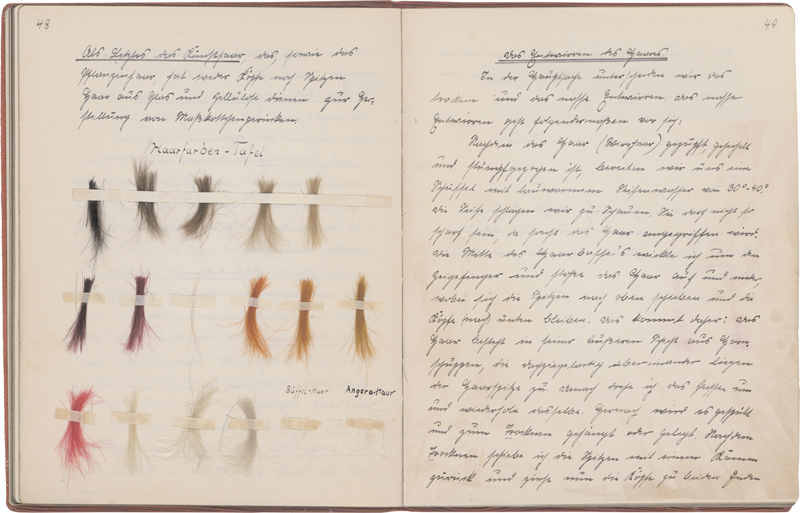 48
Als Letztes das Kunsthaar, das, sowie das
Pflanzenhaar hat weder Köpfe noch Spitzen.
Haar aus Glas und Zellulose dienen zur Her-
stellung von Maskottchenperücken.
Haarfarben-Tafel
Büffel-Haar
Angora-Haar
49
Das Entwirren des Haares.
In der Hauptsache unterscheiden wir das
trocken und das nasse Entwirren. Das nasse
Entwirren geht folgendermaßen vor sich:
Nachdem das Haar (Wirrhaar) gezupft, gehechelt
und stumpfgezogen ist, bereiten wir uns eine
Schüssel mit lauwarmem Seifenwasser von 30°-40°.
Die Seife schlagen wir zu Schaum. Sie darf nicht so
scharf sein, da sonst das Haar angegriffen wird.
Die Mitte des Haar wickle ich um den
Zeigefinger und stoße das Haar auf und nieder,
wobei sich die Spitzen nach oben schieben und die
Köpfe nach unten bleiben. Das kommt daher: das
Haar besteht in seiner äußeren Schicht aus Horn-
schuppen, die dachziegelartig übereinander liegen
der Haarspitze zu. Danach drehe ich das um
und wiederhole dasselbe. Hernach wird es gespült
und zum Trocknen gehängt oder gelegt. Nach dem
Trocknen schiebe ich die Spitzen mit einem Kamm
zurück und ziehe nun die Köpfe zu beiden Enden